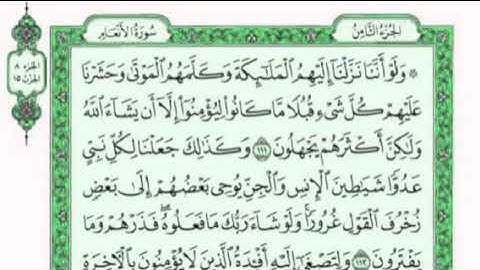 الجُزءُ الثَّامِنُ
سُورَةُ الأَنْعَامِ
الجزء ٨
الحزب ١٥
۞ وَلَوْ أَنَّنَا نَزَّلْنَآ إِلَيْهِمُ ٱلْمَلَـٰٓئِكَةَ وَكَلَّمَهُمُ ٱلْمَوْتَىٰ وَحَشَرْنَا
عَلَيْهِمْ كُلَّ شَىْءٍ قُبُلًا مَّا كَانُوا۟ لِيُؤْمِنُوٓا۟ إِلَّآ أَن يَشَآءَ ٱللَّهُ
وَلَـٰكِنَّ أَكْثَرَهُمْ يَجْهَلُونَ ١١١ وَكَذَٰلِكَ جَعَلْنَا لِكُلِّ نَبِىٍّ
عَدُوًّا شَيَـٰطِينَ ٱلْإِنسِ وَٱلْجِنِّ يُوحِى بَعْضُهُمْ إِلَىٰ بَعْضٍ
زُخْرُفَ ٱلْقَوْلِ غُرُورًا ۚ وَلَوْ شَآءَ رَبُّكَ مَا فَعَلُوهُ ۖ فَذَرْهُمْ وَمَا
يَفْتَرُونَ ١١٢ وَلِتَصْغَىٰٓ إِلَيْهِ أَفْـِٔدَةُ ٱلَّذِينَ لَا يُؤْمِنُونَ بِٱلْـَٔاخِرَةِ